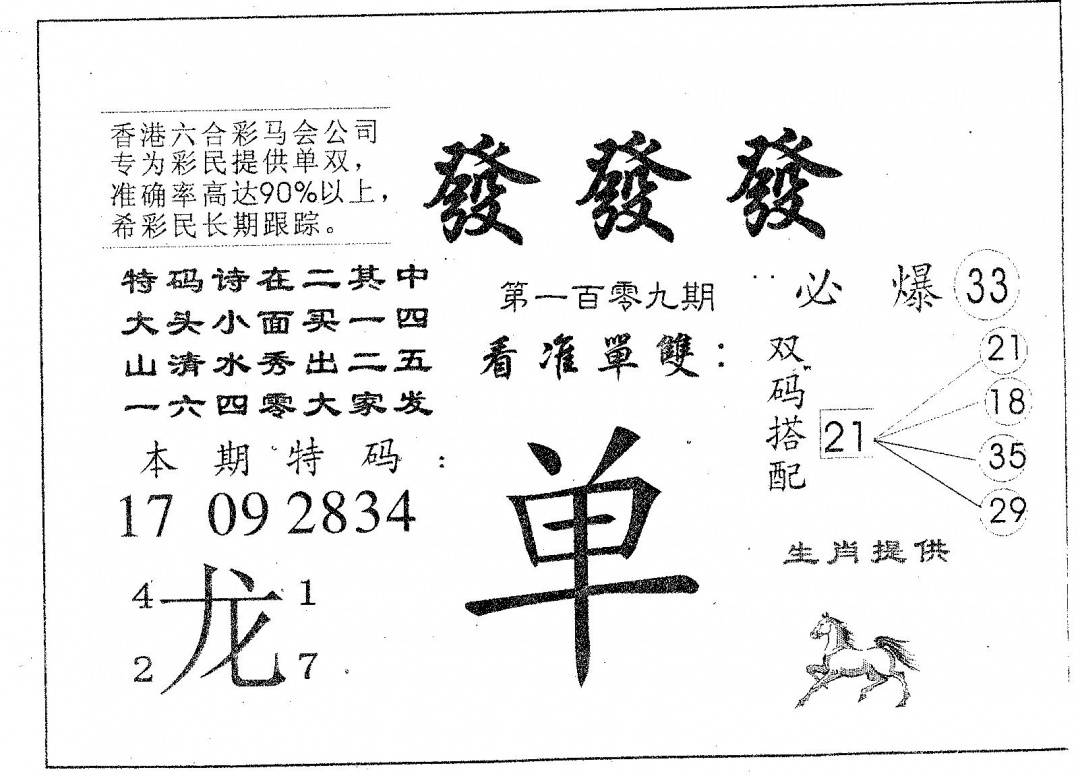 香港六合彩马会公司
专为彩民提供单双，
准确率高达90%以上，
希彩民长期跟踪。
發發發
特码诗在二其中
大头小面买一四
山清水秀出二五
一六四零大家发
第一百零九期
看准單雙：
必爆33
双码搭配
21
21
18
35
29
本期特码：
17 09 2834
单
4 龙 1
2 7
生肖提供